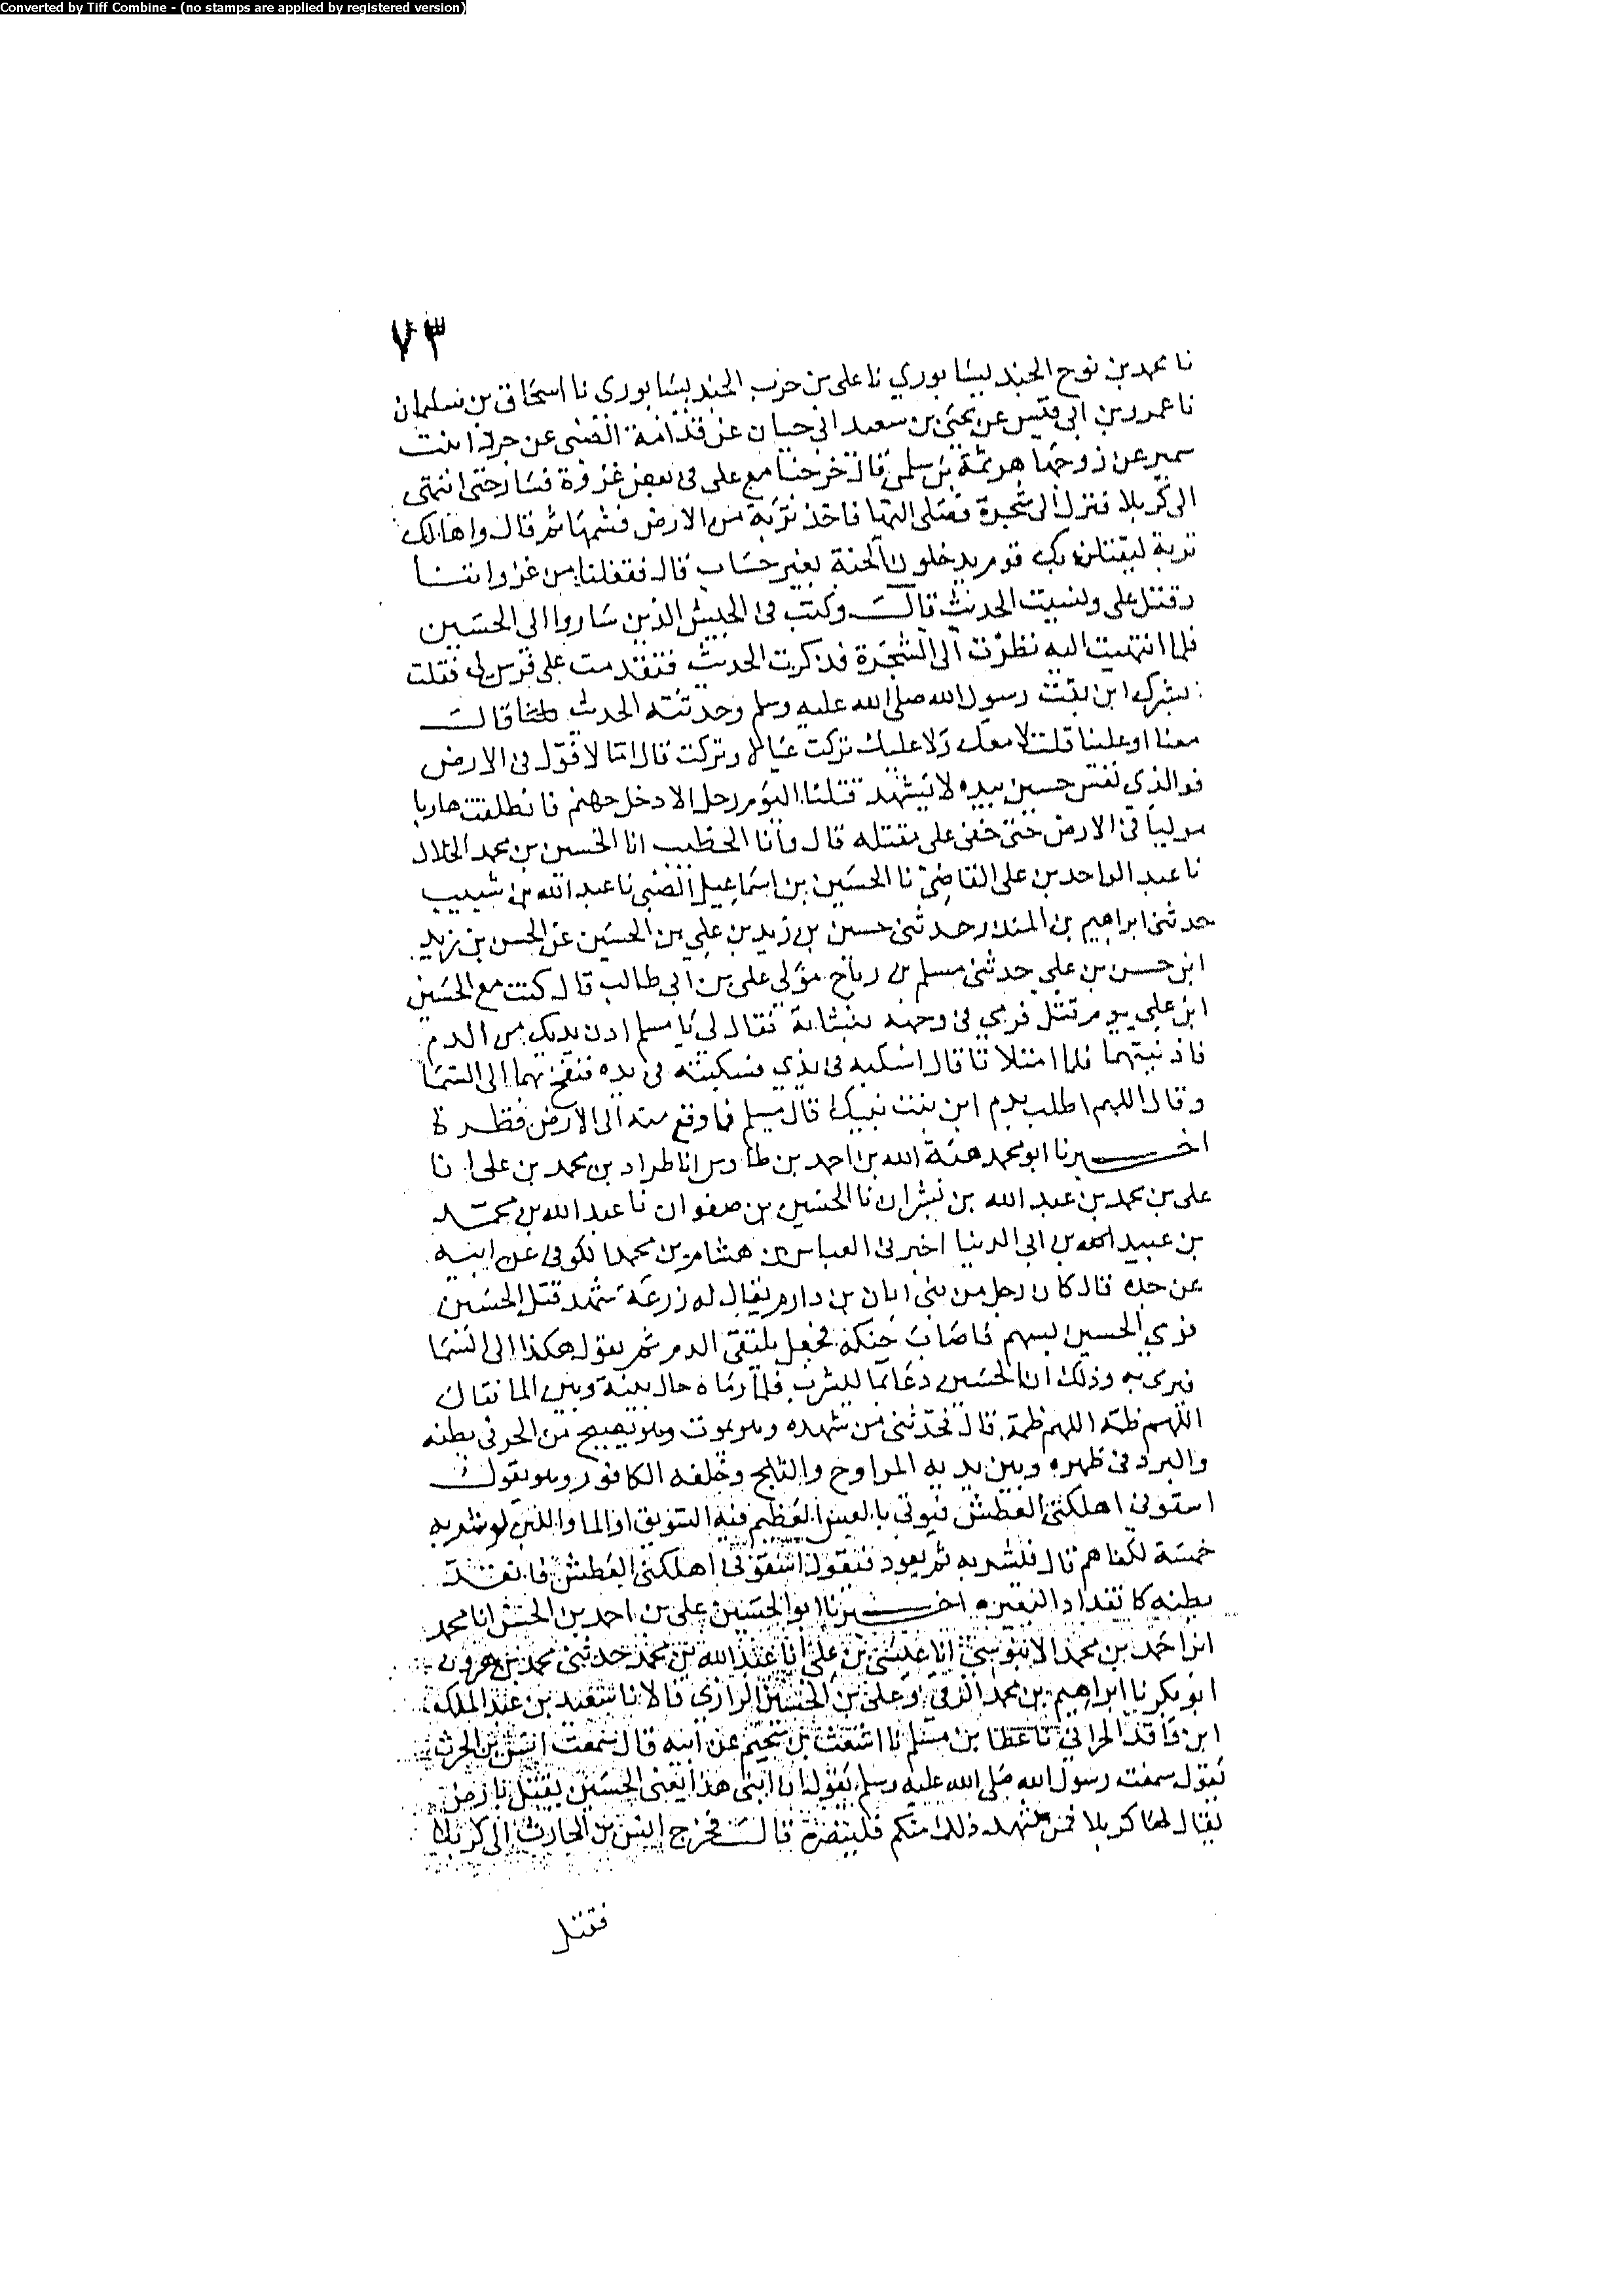 Converted by Tiff Combine - (no stamps are applied by registered version)
٧٣
نا محمد بن نوح الجنديسابوري نا علي بن حرب الجنديسابوري نا اسحاق بن سليمان
نا عمرو بن ابي قيس عن يحيى بن سعيد ابي حيان عن قدامة الضبي عن جردا ابنت
سمير عن زوجها هرثمة بن سلمى قال خرجنا مع علي في بعض غزوة فسار حتى انتهى
الى كربلا فنزل الى شجرة فصلى اليها فاخذ تربة من الارض فشمها ثم قال واها لك
تربة ليقتلن بك قوم يدخلون الجنة بغير حساب قال فقفلنا من غزواتنا
وقتل علي ونسيت الحديث قال وكنت في الجيش الذين ساروا الى الحسين
فلما انتهيت اليه نظرت الى الشجرة فذكرت الحديث فتقدمت على فرس لي فقلت
ابشرك ابن بنت رسول الله صلى الله عليه وسلم وحدثته الحديث قال
معنا او علينا قلت لا معك ولا عليك تركت عيالا وتركت قال اما لا فول في الارض
فوالذي نفس حسين بيده لا يشهد قتلنا اليوم رجل الا دخل جهنم فانطلقت هاربا
موليا في الارض حتى خفي علي مقتله قال وانا الخطيب انا الحسين بن محمد الخلال
نا عبد الواحد بن علي القاضي نا الحسين بن اسماعيل الضبي نا عبد الله بن شبيب
حدثني ابراهيم بن المنذر حدثني حسين بن زيد بن علي بن الحسين عن الحسن بن زيد
ابن حسن بن علي حدثني مسلم بن رباح مولى علي بن ابي طالب قال كنت مع الحسين
ابن علي يوم قتل فرمي في وجهه بنشابة فقال لي يا مسلم ادن يديك من الدم
فادنيتهما فلما امتلاتا قال اسكبه في يدي فسكبته في يده فنفخ بهما الى السما
وقال اللهم اطلب بدم ابن بنت نبيك قال مسلم فما وقع منه الى الارض قطرة
اخبرنا ابو محمد هبة الله بن احمد بن طاوس انا طراد بن محمد بن علي انا
علي بن محمد بن عبد الله بن بشران نا الحسين بن صفوان نا عبد الله بن محمد
بن عبيد الله بن ابي الدنيا اخبرني العباس بن هشام بن محمد الكوفي عن ابيه
عن جده قال كان رجل من بني ابان بن دارم يقال له زرعة شهد قتل الحسين
فرمى الحسين بسهم فاصاب حنكه فجعل يلتقي الدم ثم يقول هكذا الى السما
فيرمي به وذلك ان الحسين دعا بما ليشرب فلما رماه حال بينه وبين الما فقال
اللهم ظمه اللهم ظمه قال فحدثني من شهده وهو يموت وهو يصيح من الحر في بطنه
والبرد في ظهره وبين يديه المراوح والثلج وخلفه الكافور وهو يقول
اسقوني اهلكني العطش فيوتى بالعس العظيم فيه السويق او الما واللبن لو شربه
خمسة لكفاهم قال فيشربه ثم يعود فيقول اسقوني اهلكني العطش فانقد
بطنه كانقداد البعير اخبرنا ابو الحسين علي بن احمد بن الحسن انا محمد
ابن احمد بن محمد الابنوسي انا عيسى بن علي انا عبد الله بن محمد حدثني محمد بن هرون
ابو بكر نا ابراهيم بن محمد الرقي وعلي بن الحسين الرازي قالا نا سعيد بن عبد الملك
ابن واقد الحراني نا عطا بن مسلم نا اشعث بن سحيم عن ابيه قال سمعت انس بن الحرث
يقول سمعت رسول الله صلى الله عليه وسلم يقول ان ابني هذا يعني الحسين يقتل بارض
يقال لها كربلا فمن شهد ذلك منكم فلينصره قال فخرج انس بن الحارث الى كربلا
فقتل